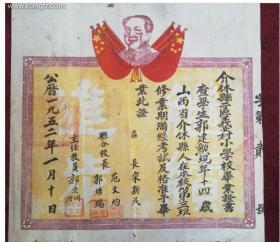 介休縣三區義村小學校畢業證書
查學生郭建勳現年十四歲
山西省介休縣人在本校第三班
修業期滿經考試及格准予畢
業此證
區長宋新民
聯合校長范文灼
郭增瑞
主任教員郭
公曆一九五二年一月十日
字第 號